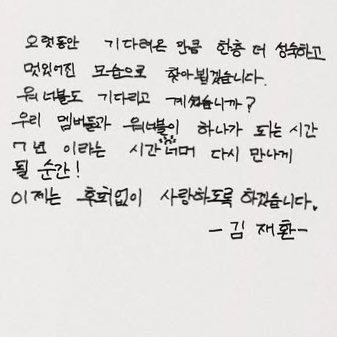 오랫동안 기다려온 만큼 한층 더 성숙하고
멋있어진 모습으로 찾아뵙겠습니다.
워너블도 기다리고 계셨습니까?
우리 멤버들과 워너블이 하나가 되는 시간
7년 이라는 시간 너머 다시 만나게
될 순간!
이제는 후회없이 사랑하도록 하겠습니다.
- 김재환 -